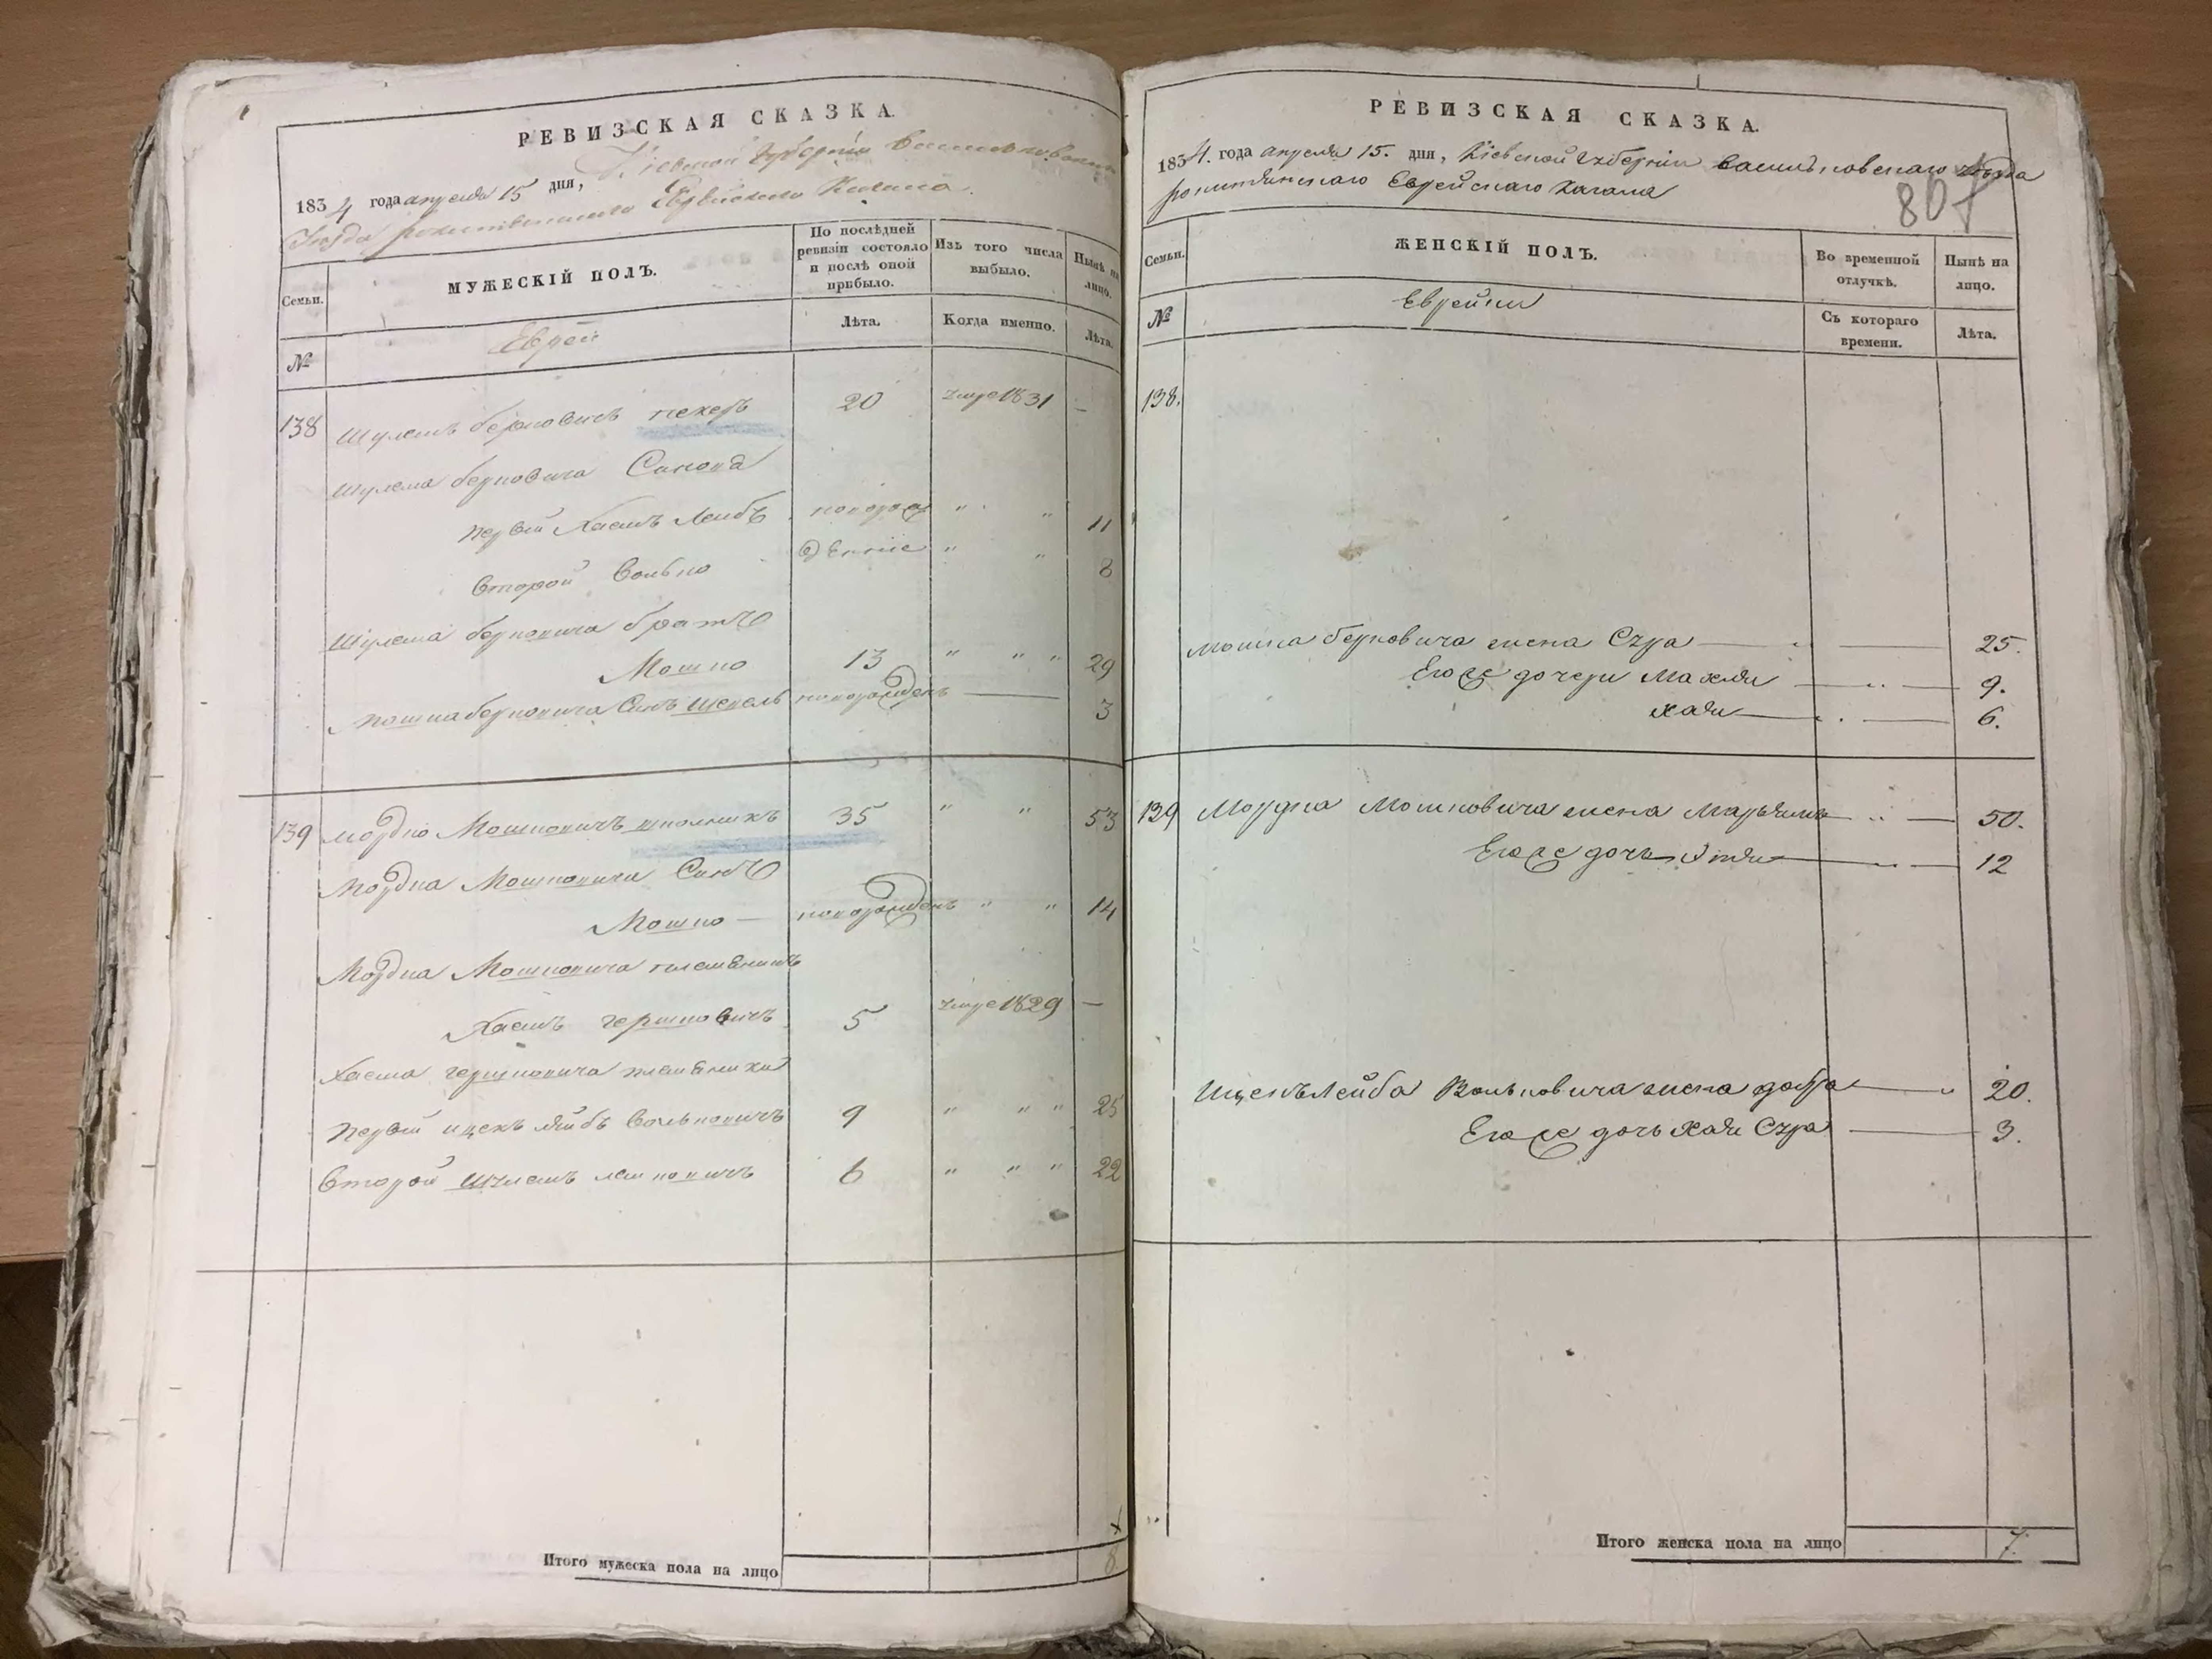 РЕВИЗСКАЯ СКАЗКА.
1834 года апреля 15 дня, Кіевской Губерніи Васильковскаго
Уезда рокитянскаго Еврейскаго Кагала.
Семьи.
МУЖЕСКІЙ ПОЛЪ.
По послѣдней ревизіи состояло и послѣ оной прибыло.
Изъ того числа выбыло.
Нынѣ на лицо.
№
Евреи
Лѣта.
Когда именно.
Лѣта.
138 Шулемъ берковичъ пекеръ 20 умре 1831 —
Шулема берковича Сыновья
первый Хаимъ Лейбъ новорож " " 11
второй Волько денніе " " 8
Шулема берковича братъ
Мошко 13 " " " 29
Мошка берковича Сынъ Шепсель новорожденъ — 3
139 Мордко Мошковичъ школникъ 35 " " 53
Мордка Мошковича Сынъ
Мошко — новорожденъ " " 14
Мордка Мошковича племянникъ
Хаимъ гершковичъ 5 умре 1829 —
Хаима гершковича племянники
первый ицекъ лейбъ вольковичъ 9 " " " 25
Второй Шулемъ 6 " " " 22
Итого мужеска пола на лицо 8
РЕВИЗСКАЯ СКАЗКА.
1834. года апреля 15. дня, Кіевской губерніи васильковскаго уезда
рокитянскаго Еврейскаго кагала
807
Семьи.
ЖЕНСКІЙ ПОЛЪ.
Во временной отлучкѣ.
Нынѣ на лицо.
№
Еврейки
Съ котораго времени.
Лѣта.
138.
Мошка берковича жена Сура — " — 25.
Его же дочери Махля — " — 9.
хая — " — 6.
139 Мордка Мошковича жена Марьямъ — " — 50.
Его же дочь Этля — " — 12
Ицекъ Лейба Вольковича жена добра — " 20.
Его же дочь хая Сура — 3.
Итого женска пола на лицо 7.